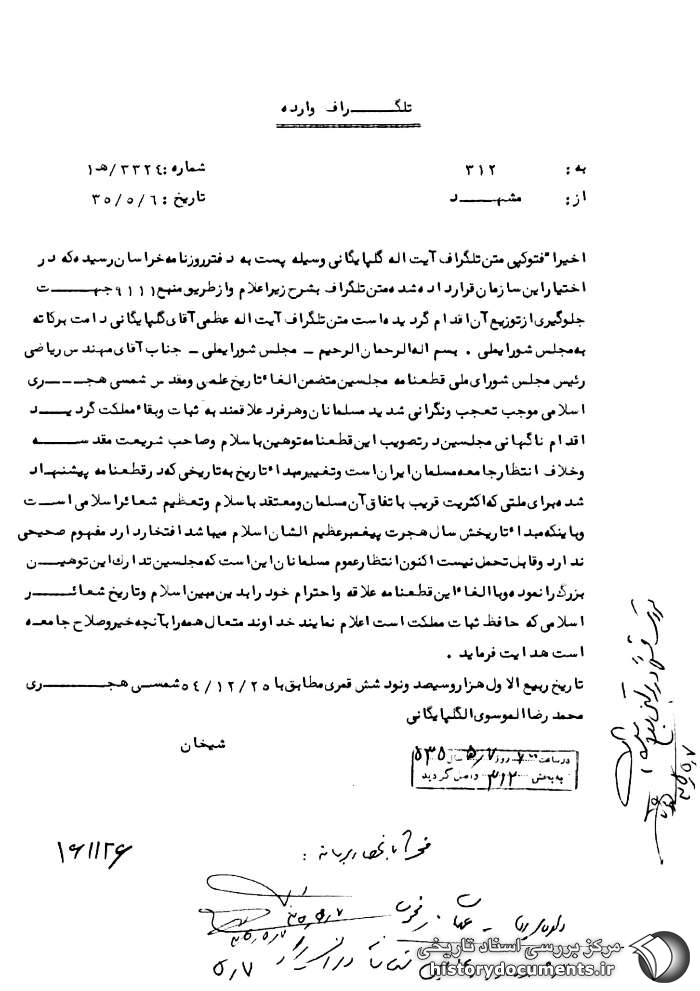 تلگراف وارده
به : ۳۱۲
شماره : ۳۳۲٤/هـ۱
از : مشهد
تاریخ : ۳۵/۵/٦
اخیرا" فتوکپی متن تلگراف آیت اله گلپایگانی وسیله پست به دفتر روزنامه خراسان رسیده که در
اختیار این سازمان قرار داده شده متن تلگراف بشرح زیر اعلام و از طریق منبع ۹۱۱۱ جهت
جلوگیری از توزیع آن اقدام گردیده است متن تلگراف آیت اله عظمی آقای گلپایگانی دامت برکاته
به مجلس شورایملی . بسم اله الرحمان الرحیم – مجلس شورایملی – جناب آقای مهندس ریاضی
رئیس مجلس شورای ملی قطعنامه مجلسین متضمن الغاء تاریخ علمی و مقدس شمسی هجری
اسلامی موجب تعجب ونگرانی شدید مسلمانان وهرفرد علاقمند به ثبات وبقاء مملکت گردید
اقدام ناگهانی مجلسین در تصویب این قطعنامه توهین باسلام وصاحب شریعت مقدسه
وخلاف انتظار جامعه مسلمان ایران است وتغییر مبداء تاریخ به تاریخی که در قطعنامه پیشنهاد
شده برای ملتی که اکثریت قریب باتفاق آن مسلمان ومعتقد باسلام وتعظیم شعائر اسلامی است
وباینکه مبداء تاریخش سال هجرت پیغمبر عظیم الشان اسلام میباشد افتخار دارد مفهوم صحیحی
ندارد وقابل تحمل نیست اکنون انتظار عموم مسلمانان این است که مجلسین تدارک این توهین
بزرگ را نموده وبا الغاء این قطعنامه علاقه واحترام خود را بدین مبین اسلام وتاریخ شعائر
اسلامی که حافظ ثبات مملکت است اعلام نمایند خداوند متعال همه را بآنچه خیر وصلاح جامعه
است هدایت فرماید .
تاریخ ربیع الاول هزار وسیصد ونود شش قمری مطابق با ۵٤/۱۲/۲۵ شمسی هجری
محمد رضا الموسوی الگلپایگانی
شیخان
در ساعت روز ۵/۷ سال ۵۳۵
به بخش ۳۱۲ واصل گردید
۱۶۱۱۲۶
۳۵/۵/۷
۵/۷
مرکز بررسی اسناد تاریخی
historydocuments.ir